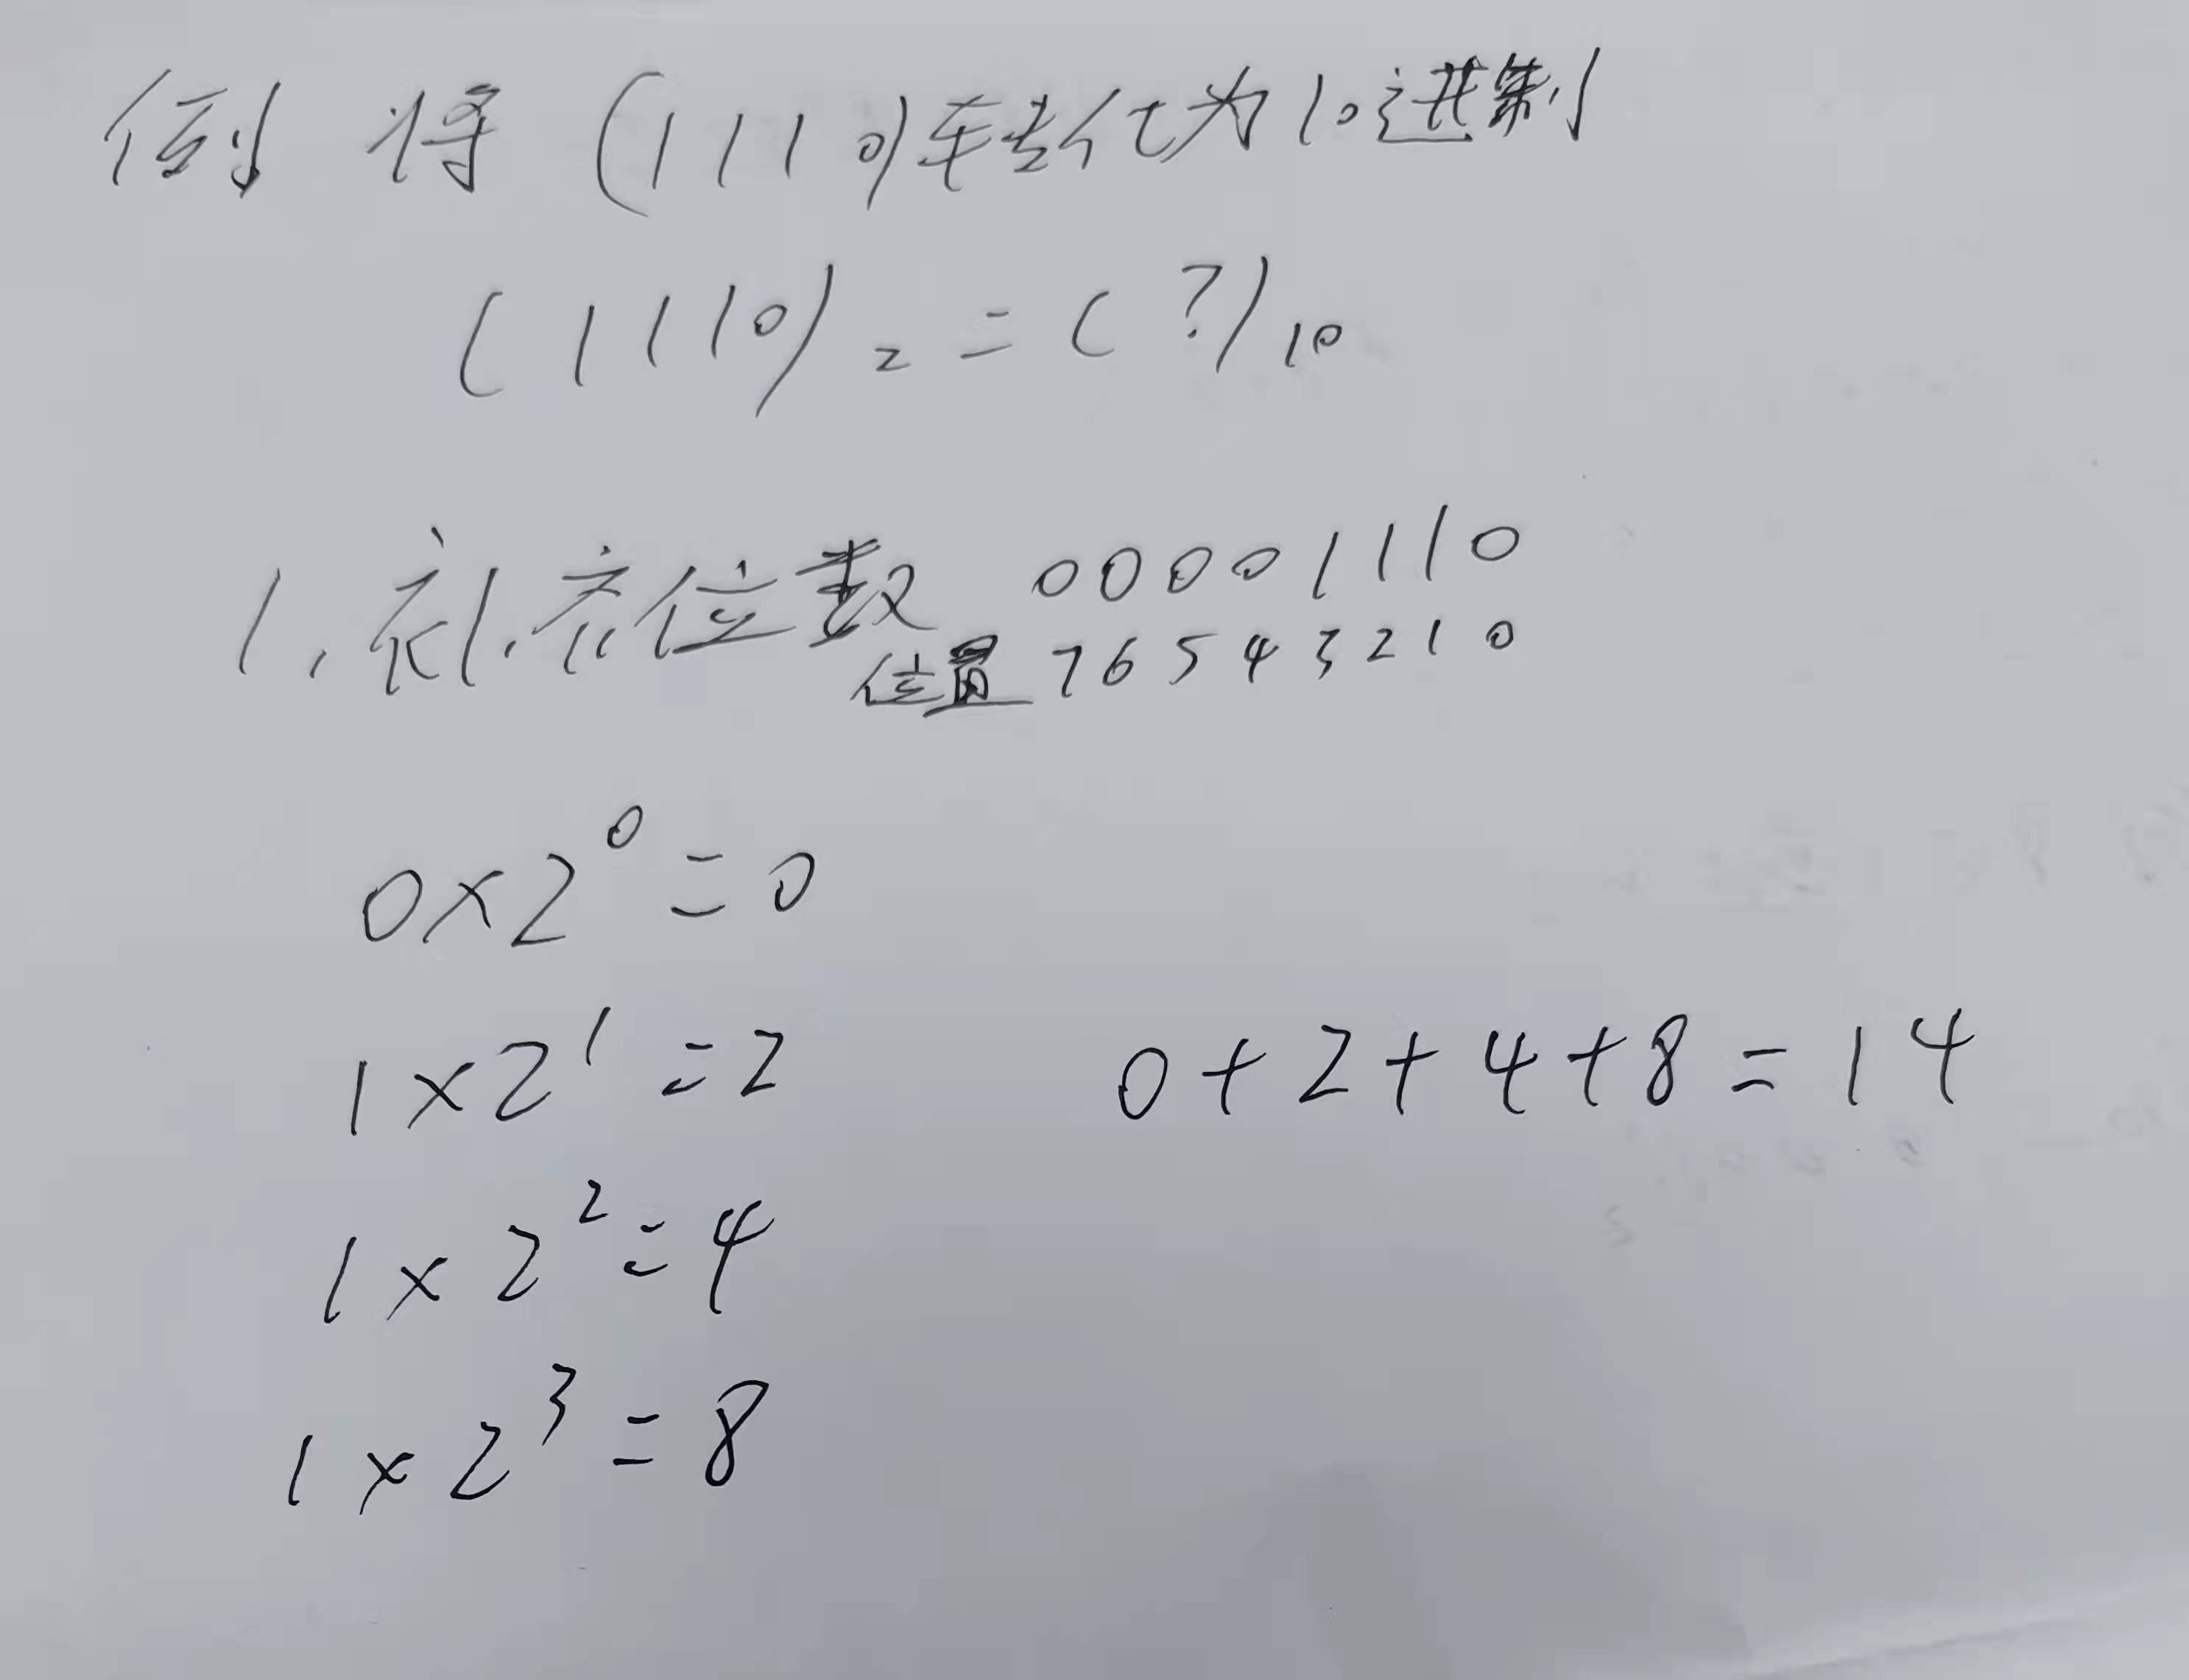 例 将(1110)转化为10进制
(1110)₂=(?)₁₀
1.补齐位数 00001110
位置 76543210
0×2⁰=0
1×2¹=2 0+2+4+8=14
1×2²=4
1×2³=8